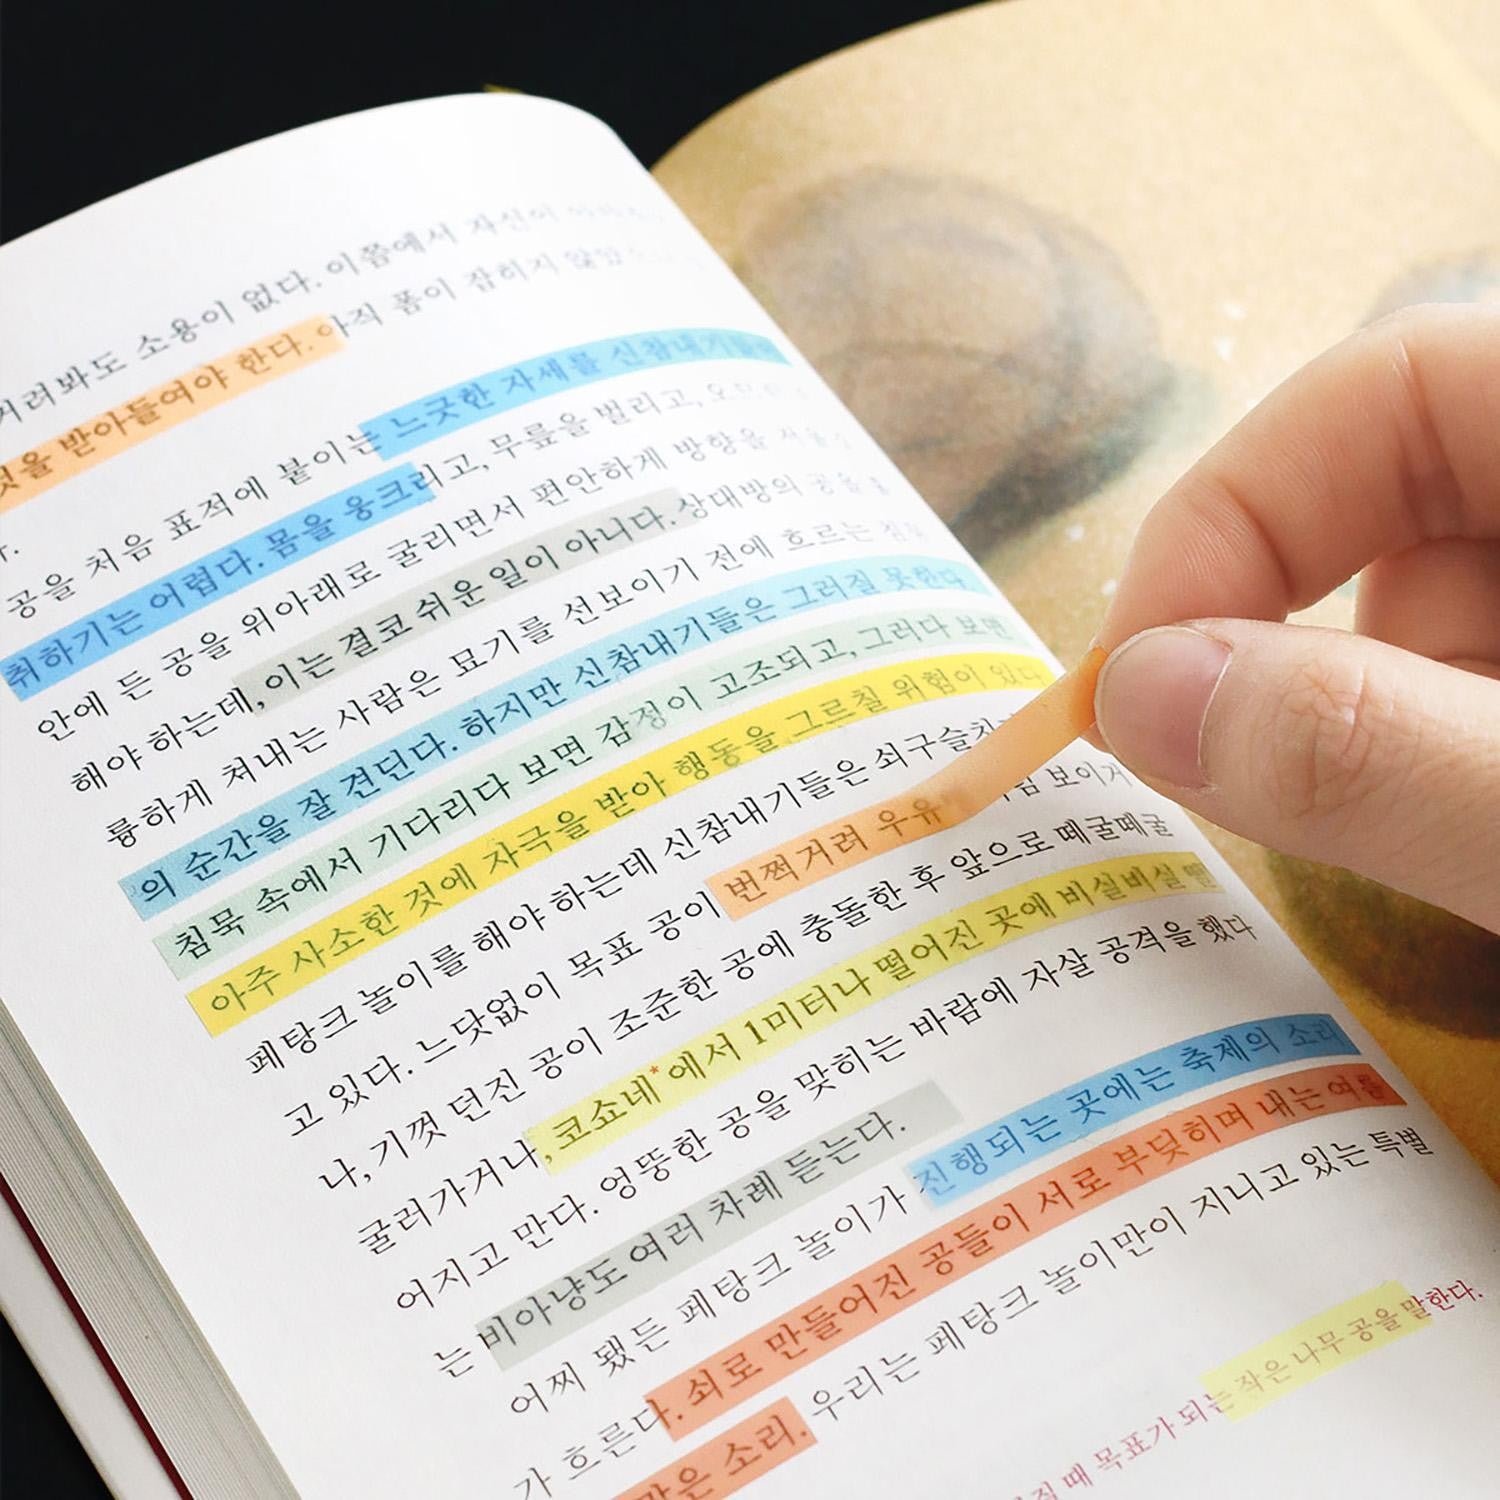 거려봐도 소용이 없다. 이쯤에서 자신이
것을 받아들여야 한다. 아직 폼이 잡히지 않았
다.
공을 처음 표적에 붙이는 느긋한 자세를 신참내기들이
취하기는 어렵다. 몸을 웅크리고, 무릎을 벌리고, 오므린
안에 든 공을 위아래로 굴리면서 편안하게 방향을 저울질
해야 하는데, 이는 결코 쉬운 일이 아니다. 상대방의 공을 훌
륭하게 쳐내는 사람은 묘기를 선보이기 전에 흐르는 침묵
의 순간을 잘 견딘다. 하지만 신참내기들은 그러질 못한다.
침묵 속에서 기다리다 보면 감정이 고조되고, 그러다 보면
아주 사소한 것에 자극을 받아 행동을 그르칠 위험이 있다.
페탕크 놀이를 해야 하는데 신참내기들은 쇠구슬치기
고 있다. 느닷없이 목표 공이 번쩍거려 우유 보이거
나, 기껏 던진 공이 조준한 공에 충돌한 후 앞으로 떼굴떼굴
굴러가거나, 코쇼네*에서 1미터나 떨어진 곳에 비실비실 떨
어지고 만다. 엉뚱한 공을 맞히는 바람에 자살 공격을 했다
는 비아냥도 여러 차례 듣는다.
어찌 됐든 페탕크 놀이가 진행되는 곳에는 축제의 소리
가 흐른다. 쇠로 만들어진 공들이 서로 부딪히며 내는 여름
같은 소리. 우리는 페탕크 놀이만이 지니고 있는 특별
때 목표가 되는 작은 나무 공을 말한다.